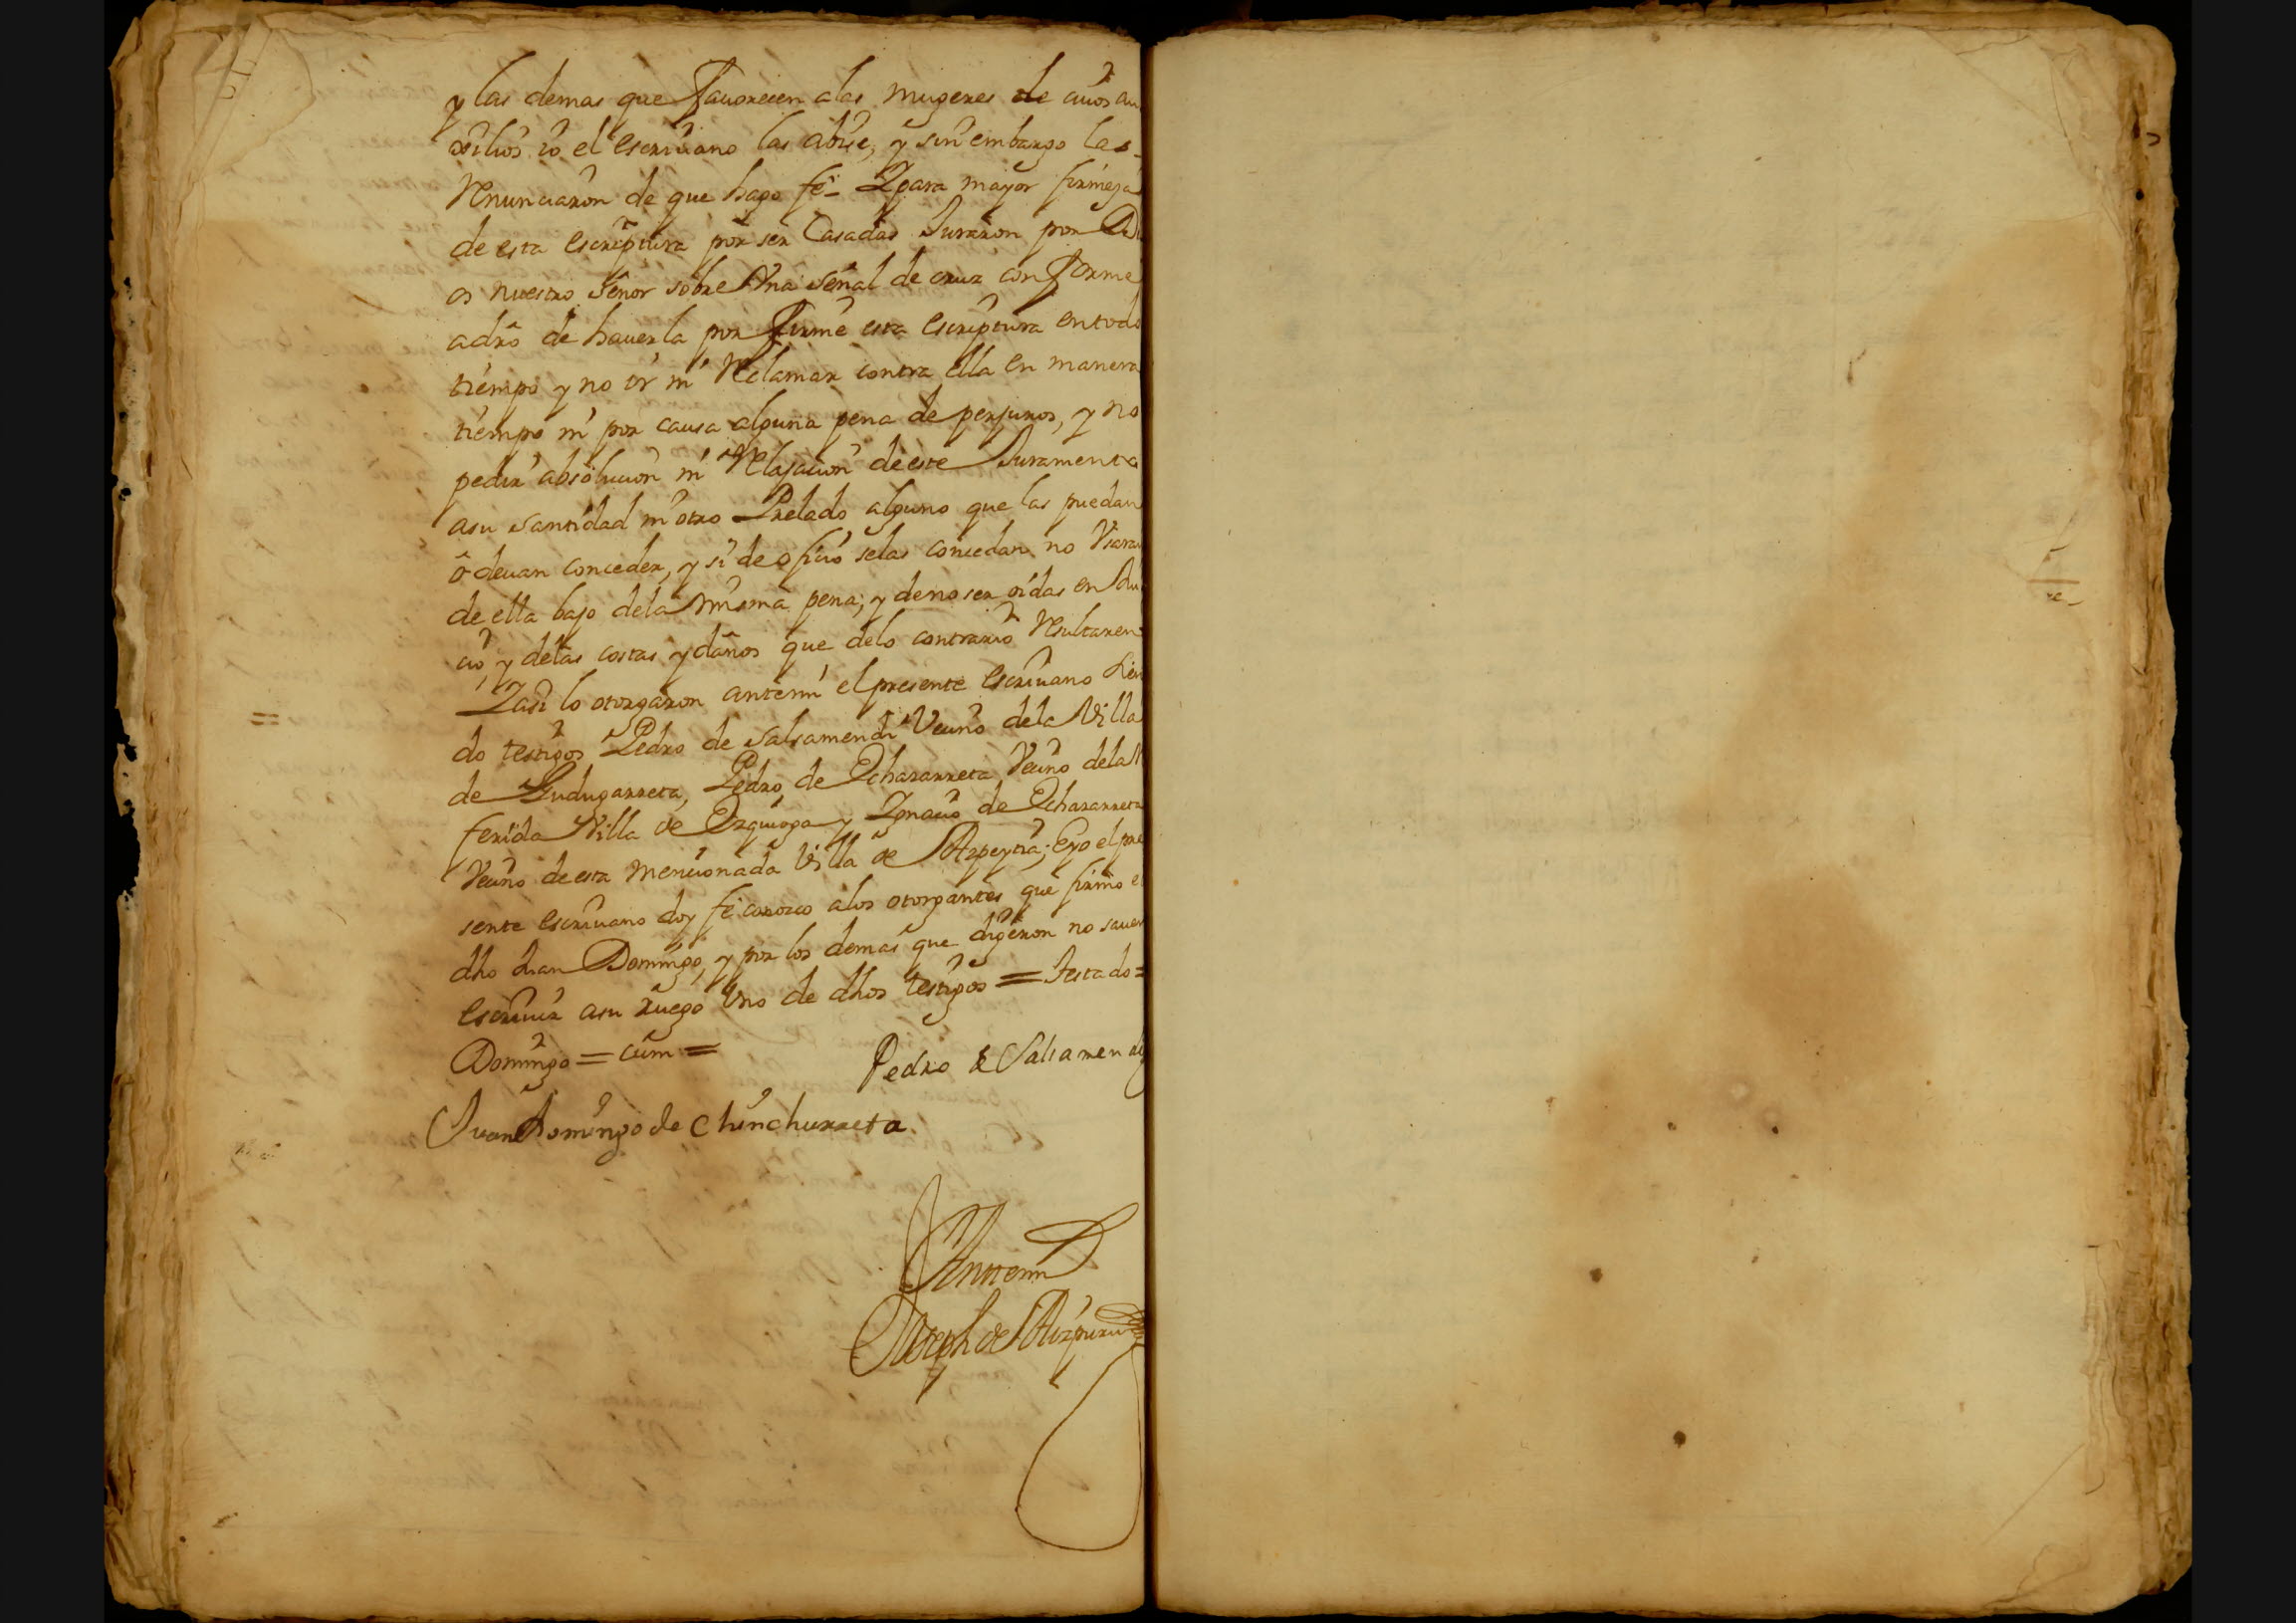 y las demas que favorecen alas mugeres de cuios au
xilios io el escriuano las abise, y sin embargo las
renunciaron de que hago fe- Ypara mayor firmeza
de esta escriptura por ser Casadas Juraron por Di
os nuestro señor sobre Vna señal de cruz conforme
adro de hauerla por firme esta escriptura entodo
tiempo y no ir ni reclamar contra ella en manera
tiempo ni por causa alguna pena de perjuros, y no
pedir absolucion ni relajacion deeste Juramento
asu santidad ni otro Prelado alguno que las puedan
ô deuan conceder, y si de oficio selas concedan no Vsaran
de ella bajo dela misma pena, y deno ser oidas en Jui
cio, y delas costas y daños que delo contrario resultaren
Yasi lo otorgaron antemi el presente escriuano sien
do testigos Pedro de Salsamendi Vecino dela Villa
de Gudugarreta, Pedro de Echazarreta Vecino dela re
ferida Villa de Ezquioga y Ygnacio de Echazarreta
Vecino deesta mencionada Villa de Azpeytia; Eyo el pre
sente escriuano doy fe conozco alos otorgantes que firmo el
dho Juan Domingo, y por los demas que digeron no sauer
escriuir asu ruego Vno de dhos testigos = Testado =
Domingo = cum =
Pedro de Salsamendi
Juan Domingo de Chinchurreta
Antemi
Joseph de Aizpuru